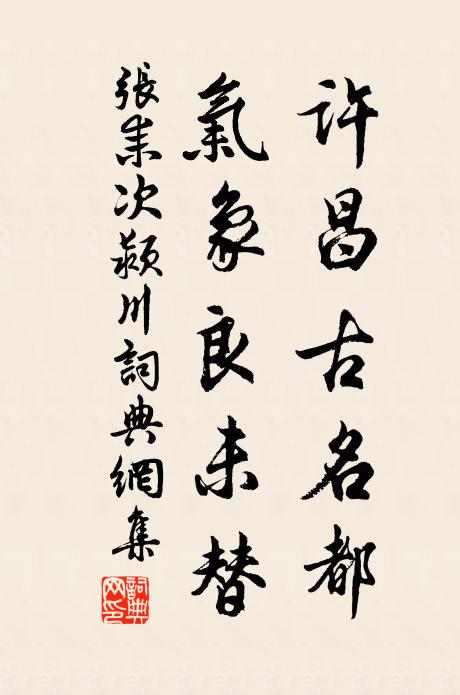 許昌古名都
氣象良未替
張耒次潁川詞典網集
詞典網印